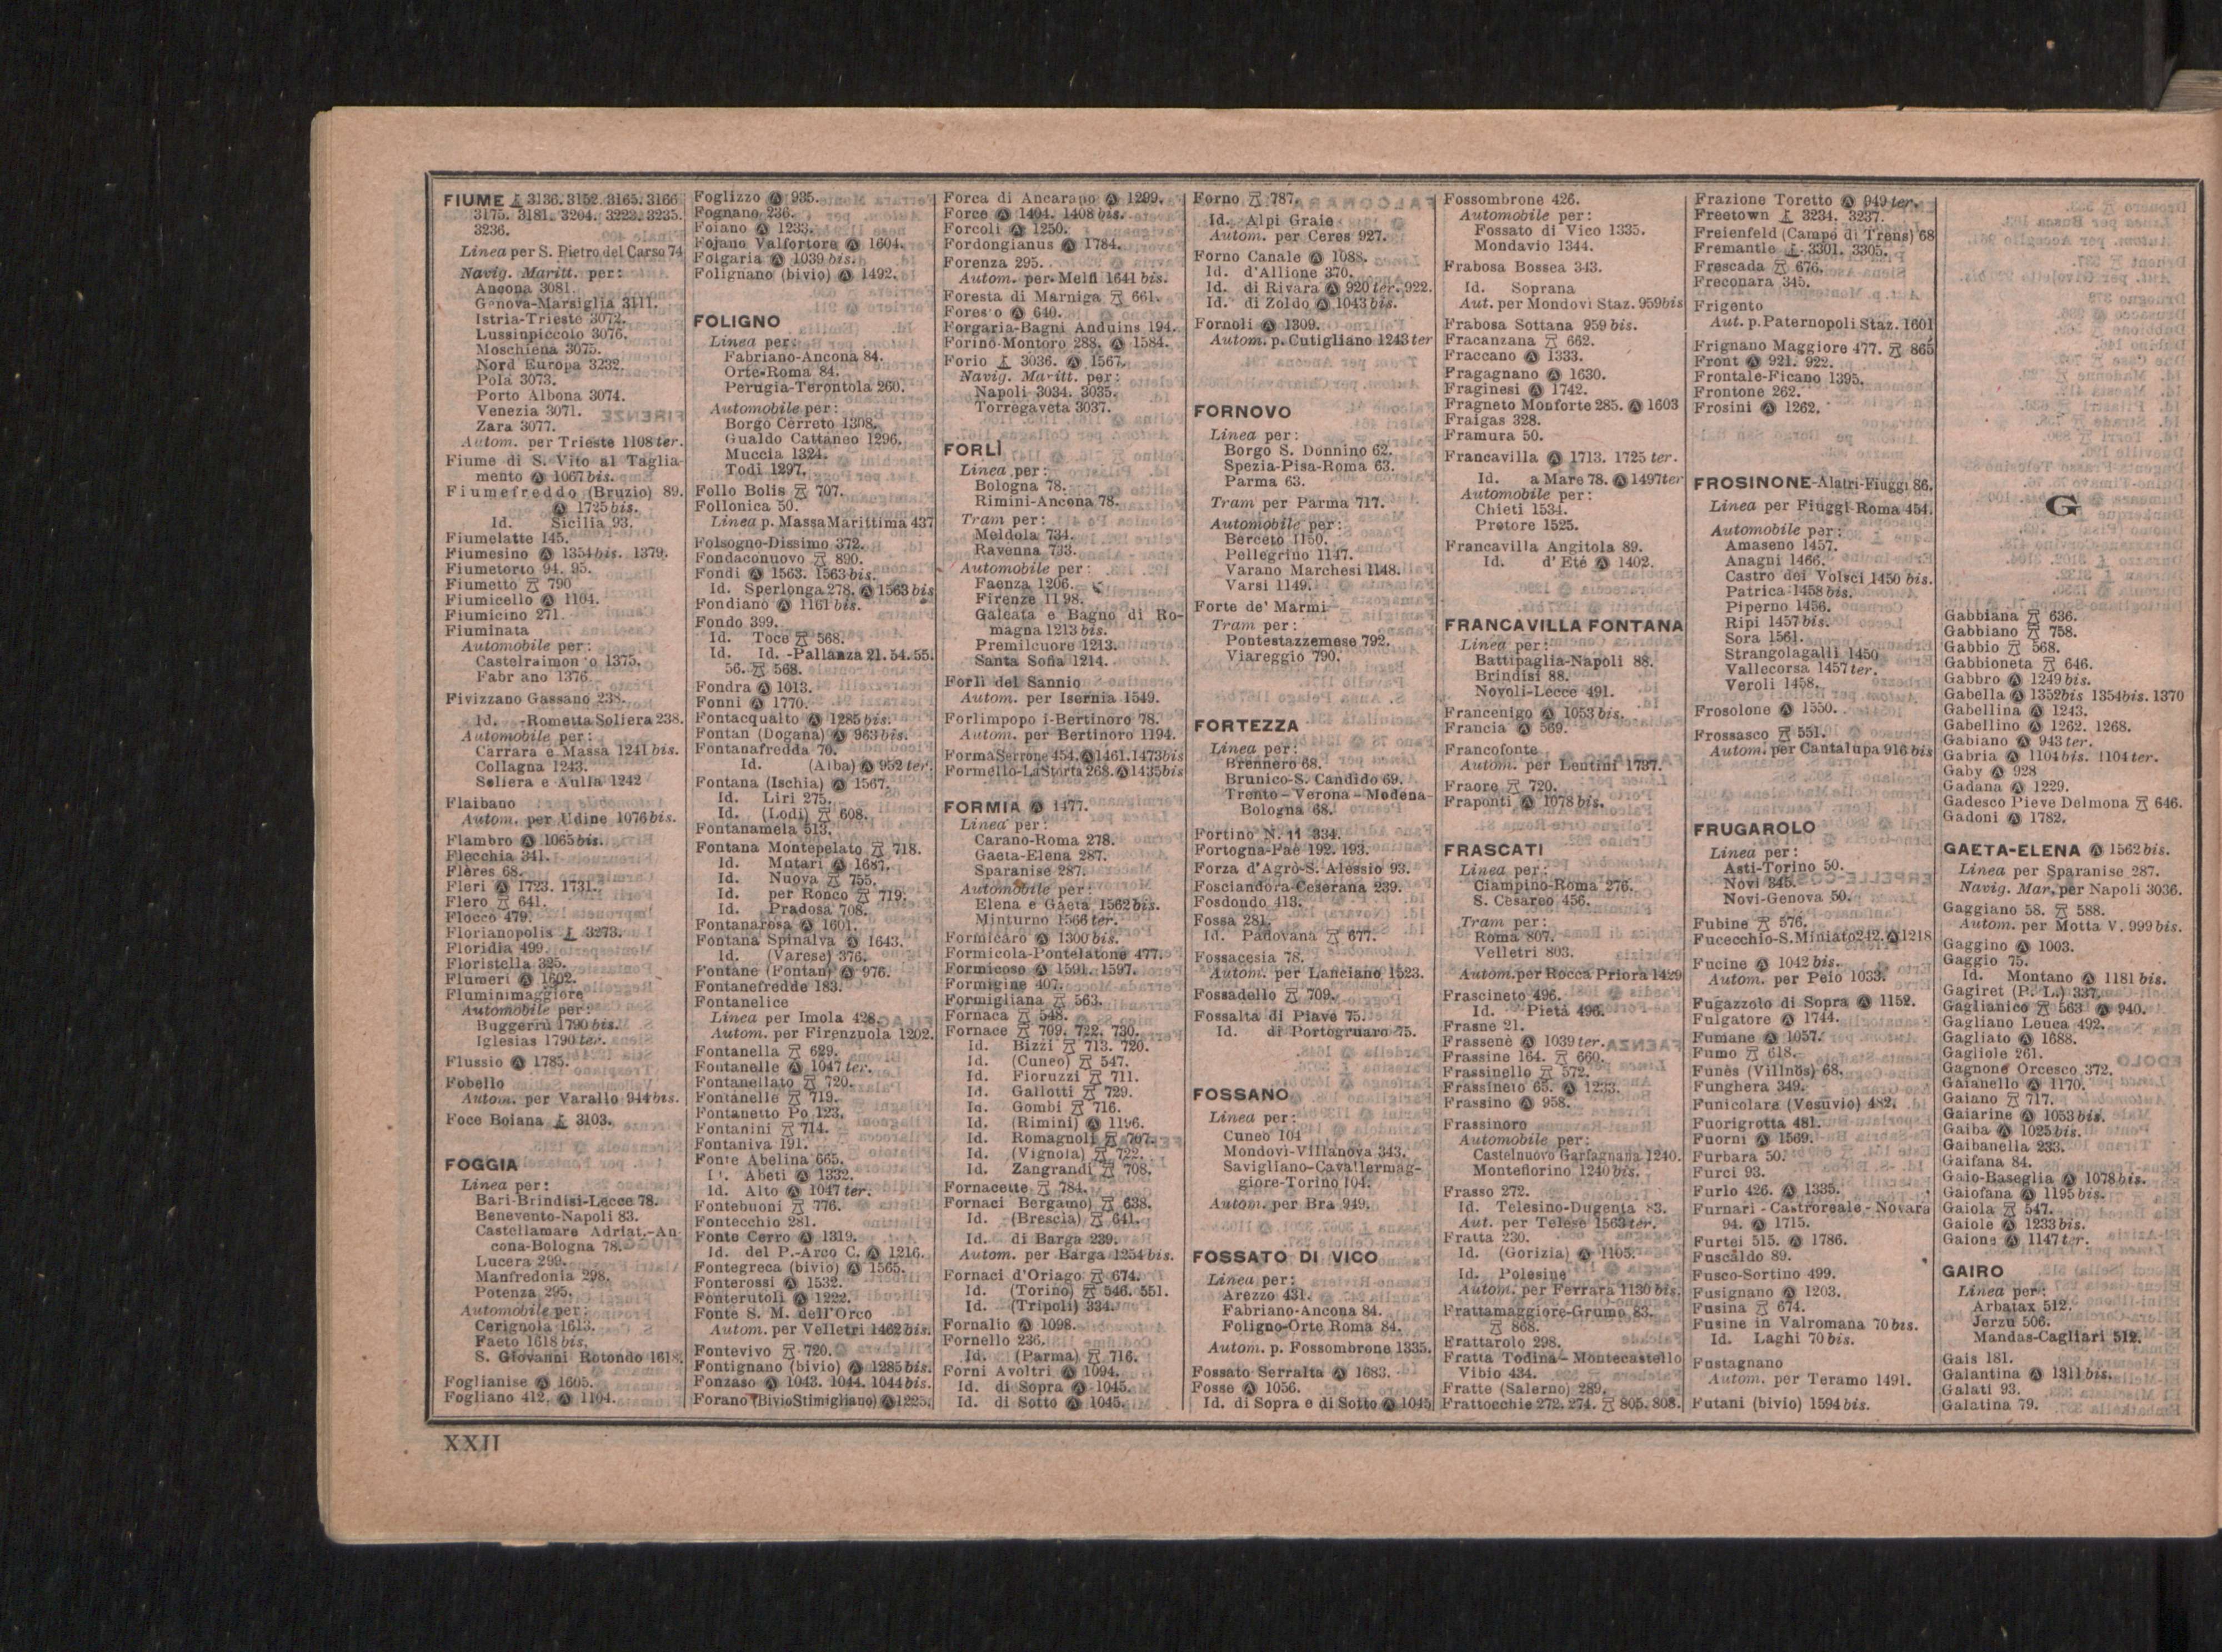 FIUME 3136. 3152. 3165. 3166
3175. 3181. 3204. 3223. 3235.
3236.
Linea per S. Pietro del Carso 74
Navig. Maritt. per:
Ancona 3081.
Genova-Marsiglia 3111.
Istria-Trieste 3072.
Lussinpiccolo 3076.
Moschiena 3075.
Nord Europa 3232.
Pola 3073.
Porto Albona 3074.
Venezia 3071.
Zara 3077.
Autom. per Trieste 1108 ter.
Fiume di S. Vito al Taglia-
mento Ⓐ 1067 bis.
Fiumefreddo (Bruzio) 89.
Ⓐ 1725 bis.
Id. Sicilia 93.
Fiumelatte 145.
Fiumesino Ⓐ 1354 bis. 1379.
Fiumetorto 94. 95.
Fiumetto 790
Fiumicello Ⓐ 1104.
Fiumicino 271.
Fiuminata
Automobile per:
Castelraimondo 1375.
Fabriano 1376.
Fivizzano Gassano 238.
Id. -Rometta Soliera 238.
Automobile per:
Carrara e Massa 1241 bis.
Collagna 1243.
Soliera e Aulla 1242
Flaibano
Autom. per Udine 1076 bis.
Flambro Ⓐ 1065 bis.
Flecchia 341.
Flères 68.
Fleri Ⓐ 1723. 1731.
Flero 641.
Flocco 479.
Florianopolis 3273.
Floridia 499.
Floristella 325.
Flumeri Ⓐ 1602.
Fluminimaggiore
Automobile per:
Buggerru 1790 bis.
Iglesias 1790 ter.
Flussio Ⓐ 1785.
Fobello
Autom. per Varallo 944 bis.
Foce Boiana 3103.
FOGGIA
Linea per:
Bari-Brindisi-Lecce 78.
Benevento-Napoli 83.
Castellamare Adriat.-An-
cona-Bologna 78.
Lucera 299.
Manfredonia 298.
Potenza 295.
Automobile per:
Cerignola 1613.
Faeto 1618 bis.
S. Giovanni Rotondo 1618.
Foglianise Ⓐ 1605.
Fogliano 412. Ⓐ 1104.
Foglizzo Ⓐ 935.
Fognano 236.
Foiano Ⓐ 1233.
Fojano Valfortore Ⓐ 1604.
Folgaria Ⓐ 1039 bis.
Folignano (bivio) Ⓐ 1492.
FOLIGNO
Linea per:
Fabriano-Ancona 84.
Orte-Roma 84.
Perugia-Terontola 260.
Automobile per:
Borgo Cerreto 1308.
Gualdo Cattaneo 1296.
Muccia 1324.
Todi 1297.
Follo Bolis 707.
Follonica 50.
Linea p. Massa Marittima 437
Folsogno-Dissimo 372.
Fondaconuovo 890.
Fondi Ⓐ 1563. 1563 bis.
Id. Sperlonga 278. Ⓐ 1563 bis
Fondiano Ⓐ 1161 bis.
Fondo 399.
Id. Toce 568.
Id. Id. -Pallanza 21. 54. 55.
56. 568.
Fondra Ⓐ 1013.
Fonni Ⓐ 1770.
Fontacqualto Ⓐ 1285 bis.
Fontan (Dogana) Ⓐ 963 bis.
Fontanafredda 70.
Id. (Alba) Ⓐ 952 ter.
Fontana (Ischia) Ⓐ 1567.
Id. Liri 275.
Id. (Lodi) 608.
Fontanamela 513.
Fontana Montepelato 718.
Id. Mutari Ⓐ 1687.
Id. Nuova 755.
Id. per Ronco 719.
Id. Pradosa 708.
Fontanarosa Ⓐ 1601.
Fontana Spinalva Ⓐ 1643.
Id. (Varese) 376.
Fontane (Fontan) Ⓐ 976.
Fontanefredde 183.
Fontanelice
Linea per Imola 428.
Autom. per Firenzuola 1202.
Fontanella 629.
Fontanelle Ⓐ 1047 ter.
Fontanellato 720.
Fontanelle 719.
Fontanetto Po 123.
Fontanini 714.
Fontaniva 191.
Fonte Abelina 665.
Id. Abeti Ⓐ 1332.
Id. Alto Ⓐ 1047 ter.
Fontebuoni 776.
Fontecchio 281.
Fonte Cerro Ⓐ 1319.
Id. del P.-Arco C. Ⓐ 1216.
Fontegreca (bivio) Ⓐ 1565.
Fonterossi Ⓐ 1532.
Fonterutoli Ⓐ 1222.
Fonte S. M. dell'Orco
Autom. per Velletri 1462 bis.
Fontevivo 720.
Fontignano (bivio) Ⓐ 1285 bis.
Fonzaso Ⓐ 1043. 1044. 1044 bis.
Forano (Bivio Stimigliano) Ⓐ 1225.
Forca di Ancarano Ⓐ 1299.
Force Ⓐ 1404. 1408 bis.
Forcoli Ⓐ 1250.
Fordongianus Ⓐ 1784.
Forenza 295.
Autom. per Melfi 1641 bis.
Foresta di Marniga 661.
Foresto Ⓐ 640.
Forgaria-Bagni Anduins 194.
Forino-Montoro 288. Ⓐ 1584.
Forio 3036. Ⓐ 1567.
Navig. Maritt. per:
Napoli 3034. 3035.
Torregaveta 3037.
FORLÌ
Linea per:
Bologna 78.
Rimini-Ancona 78.
Tram per:
Meldola 734.
Ravenna 733.
Automobile per:
Faenza 1206.
Firenze 1198.
Galeata e Bagno di Ro-
magna 1213 bis.
Premilcuore 1213.
Santa Sofia 1214.
Forlì del Sannio
Autom. per Isernia 1549.
Forlimpopoli-Bertinoro 78.
Autom. per Bertinoro 1194.
Forma Serrone 454. Ⓐ 1461. 1473 bis
Formello-La Storta 268. Ⓐ 1435 bis
FORMIA Ⓐ 1477.
Linea per:
Carano-Roma 278.
Gaeta-Elena 287.
Sparanise 287.
Automobile per:
Elena e Gaeta 1562 bis.
Minturno 1566 ter.
Formicaro Ⓐ 1300 bis.
Formicola-Pontelatone 477.
Formicoso Ⓐ 1591. 1597.
Formigine 407.
Formigliana 563.
Fornaca 548.
Fornace 709. 722. 730.
Id. Bizzi 713. 720.
Id. (Cuneo) 547.
Id. Fioruzzi 711.
Id. Gallotti 729.
Id. Gombi 716.
Id. (Rimini) Ⓐ 1196.
Id. Romagnoli 707.
Id. (Vignola) 722.
Id. Zangrandi 708.
Fornacette 784.
Fornaci Bergamo) 638.
Id. (Brescia) 641.
Id. di Barga 239.
Autom. per Barga 1254 bis.
Fornaci d'Oriago 674.
Id. (Torino) 546. 551.
Id. (Tripoli) 334.
Fornalio Ⓐ 1098.
Fornello 236.
Id. (Parma) 716.
Forni Avoltri Ⓐ 1094.
Id. di Sopra Ⓐ 1045.
Id. di Sotto Ⓐ 1045.
Forno 787.
Id. Alpi Graie
Autom. per Ceres 927.
Forno Canale Ⓐ 1088.
Id. d'Allione 370.
Id. di Rivara Ⓐ 920 ter. 922.
Id. di Zoldo Ⓐ 1043 bis.
Fornoli Ⓐ 1309.
Autom. p. Cutigliano 1243 ter
FORNOVO
Linea per:
Borgo S. Donnino 62.
Spezia-Pisa-Roma 63.
Parma 63.
Tram per Parma 717.
Automobile per:
Berceto 1150.
Pellegrino 1147.
Varano Marchesi 1148.
Varsi 1149.
Forte de' Marmi
Tram per:
Pontestazzemese 792.
Viareggio 790.
FORTEZZA
Linea per:
Brennero 68.
Brunico-S. Candido 69.
Trento-Verona-Modena-
Bologna 68.
Fortino N. 11 334.
Fortogna-Faè 192. 193.
Forza d'Agrò-S. Alessio 93.
Fosciandora-Ceserana 239.
Fosdondo 413.
Fossa 281.
Id. Padovana 677.
Fossacesia 78.
Autom. per Lanciano 1523.
Fossadello 709.
Fossalta di Piave 75.
Id. di Portogruaro 75.
FOSSANO
Linea per:
Cuneo 104
Mondovì-Villanova 343.
Savigliano-Cavallermag-
giore-Torino 104.
Autom. per Bra 949.
FOSSATO DI VICO
Linea per:
Arezzo 431.
Fabriano-Ancona 84.
Foligno-Orte Roma 84.
Autom. p. Fossombrone 1335.
Fossato Serralta Ⓐ 1683.
Fosse Ⓐ 1056.
Id. di Sopra e di Sotto Ⓐ 1045
Fossombrone 426.
Automobile per:
Fossato di Vico 1335.
Mondavio 1344.
Frabosa Bossea 343.
Id. Soprana
Aut. per Mondovì Staz. 959 bis
Frabosa Sottana 959 bis.
Fracanzana 662.
Fraccano Ⓐ 1333.
Fragagnano Ⓐ 1630.
Fraginesi Ⓐ 1742.
Fragneto Monforte 285. Ⓐ 1603
Fraigas 328.
Framura 50.
Francavilla Ⓐ 1713. 1725 ter.
Id. a Mare 78. Ⓐ 1497 ter
Automobile per:
Chieti 1534.
Pretore 1525.
Francavilla Angitola 89.
Id. d'Ete Ⓐ 1402.
FRANCAVILLA FONTANA
Linea per:
Battipaglia-Napoli 88.
Brindisi 88.
Novoli-Lecce 491.
Francenigo Ⓐ 1053 bis.
Francia Ⓐ 569.
Francofonte
Autom. per Lentini 1737.
Fraore 720.
Fraponti Ⓐ 1078 bis.
FRASCATI
Linea per:
Ciampino-Roma 276.
S. Cesareo 456.
Tram per:
Roma 807.
Velletri 803.
Autom. per Rocca Priora 1429
Frascineto 496.
Id. Pietà 496.
Frasne 21.
Frassenè Ⓐ 1039 ter.
Frassine 164. 660.
Frassinello 572.
Frassineto 65. Ⓐ 1233.
Frassino Ⓐ 958.
Frassinoro
Automobile per:
Castelnuovo Garfagnana 1240.
Montefiorino 1240 bis.
Frasso 272.
Id. Telesino-Dugenta 83.
Aut. per Telese 1563 ter.
Fratta 230.
Id. (Gorizia) Ⓐ 1105.
Id. Polesine
Autom. per Ferrara 1130 bis.
Frattamaggiore-Grumo 83.
868.
Frattarolo 298.
Fratta Todina-Montecastello
Vibio 434.
Fratte (Salerno) 289.
Frattocchie 272. 274. 805. 808.
Frazione Toretto Ⓐ 949 ter.
Freetown 3234. 3237.
Freienfeld (Campo di Trens) 68
Fremantle 3301. 3305.
Frescada 676.
Freconara 345.
Frigento
Aut. p. Paternopoli Staz. 1601
Frignano Maggiore 477. 865
Front Ⓐ 921. 922.
Frontale-Ficano 1395.
Frontone 262.
Frosini Ⓐ 1262.
FROSINONE-Alatri-Fiuggi 86.
Linea per Fiuggi-Roma 454.
Automobile per:
Amaseno 1457.
Anagni 1466.
Castro dei Volsci 1450 bis.
Patrica 1458 bis.
Piperno 1456.
Ripi 1457 bis.
Sora 1561.
Strangolagalli 1450
Vallecorsa 1457 ter.
Veroli 1458.
Frosolone Ⓐ 1550.
Frossasco 551.
Autom. per Cantalupa 916 bis
FRUGAROLO
Linea per:
Asti-Torino 50.
Novi 345.
Novi-Genova 50.
Fubine 576.
Fucecchio-S. Miniato 242. Ⓐ 1218
Fucine Ⓐ 1042 bis.
Autom. per Peio 1033.
Fugazzolo di Sopra Ⓐ 1152.
Fulgatore Ⓐ 1744.
Fumane Ⓐ 1057.
Fumo 618.
Funès (Villnös) 68.
Funghera 349.
Funicolare (Vesuvio) 482.
Fuorigrotta 481.
Fuorni Ⓐ 1569.
Furbara 50.
Furci 93.
Furlo 426. Ⓐ 1335.
Furnari-Castroreale-Novara
94. Ⓐ 1715.
Furtei 515. Ⓐ 1786.
Fuscaldo 89.
Fusco-Sortino 499.
Fusignano Ⓐ 1203.
Fusina 674.
Fusine in Valromana 70 bis.
Id. Laghi 70 bis.
Fustagnano
Autom. per Teramo 1491.
Futani (bivio) 1594 bis.
G
Gabbiana 636.
Gabbiano 758.
Gabbio 568.
Gabbioneta 646.
Gabbro Ⓐ 1249 bis.
Gabella Ⓐ 1352 bis 1354 bis. 1370
Gabellina Ⓐ 1243.
Gabellino Ⓐ 1262. 1268.
Gabiano Ⓐ 943 ter.
Gabria Ⓐ 1104 bis. 1104 ter.
Gaby Ⓐ 928
Gadana Ⓐ 1229.
Gadesco Pieve Delmona 646.
Gadoni Ⓐ 1782.
GAETA-ELENA Ⓐ 1562 bis.
Linea per Sparanise 287.
Navig. Mar. per Napoli 3036.
Gaggiano 58. 588.
Autom. per Motta V. 999 bis.
Gaggino Ⓐ 1003.
Gaggio 75.
Id. Montano Ⓐ 1181 bis.
Gagiret (P. L.) 337.
Gaglianico 563 Ⓐ 940.
Gagliano Leuca 492.
Gagliato Ⓐ 1688.
Gagliole 261.
Gagnone Orcesco 372.
Gaianello Ⓐ 1170.
Gaiano 717.
Gaiarine Ⓐ 1053 bis.
Gaiba Ⓐ 1025 bis.
Gaibanella 233.
Gaifana 84.
Gaio-Baseglia Ⓐ 1078 bis.
Gaiofana Ⓐ 1195 bis.
Gaiola 547.
Gaiole Ⓐ 1233 bis.
Gaione Ⓐ 1147 ter.
GAIRO
Linea per:
Arbatax 512.
Jerzu 506.
Mandas-Cagliari 512.
Gais 181.
Galantina Ⓐ 1311 bis.
Galati 93.
Galatina 79.
XXII